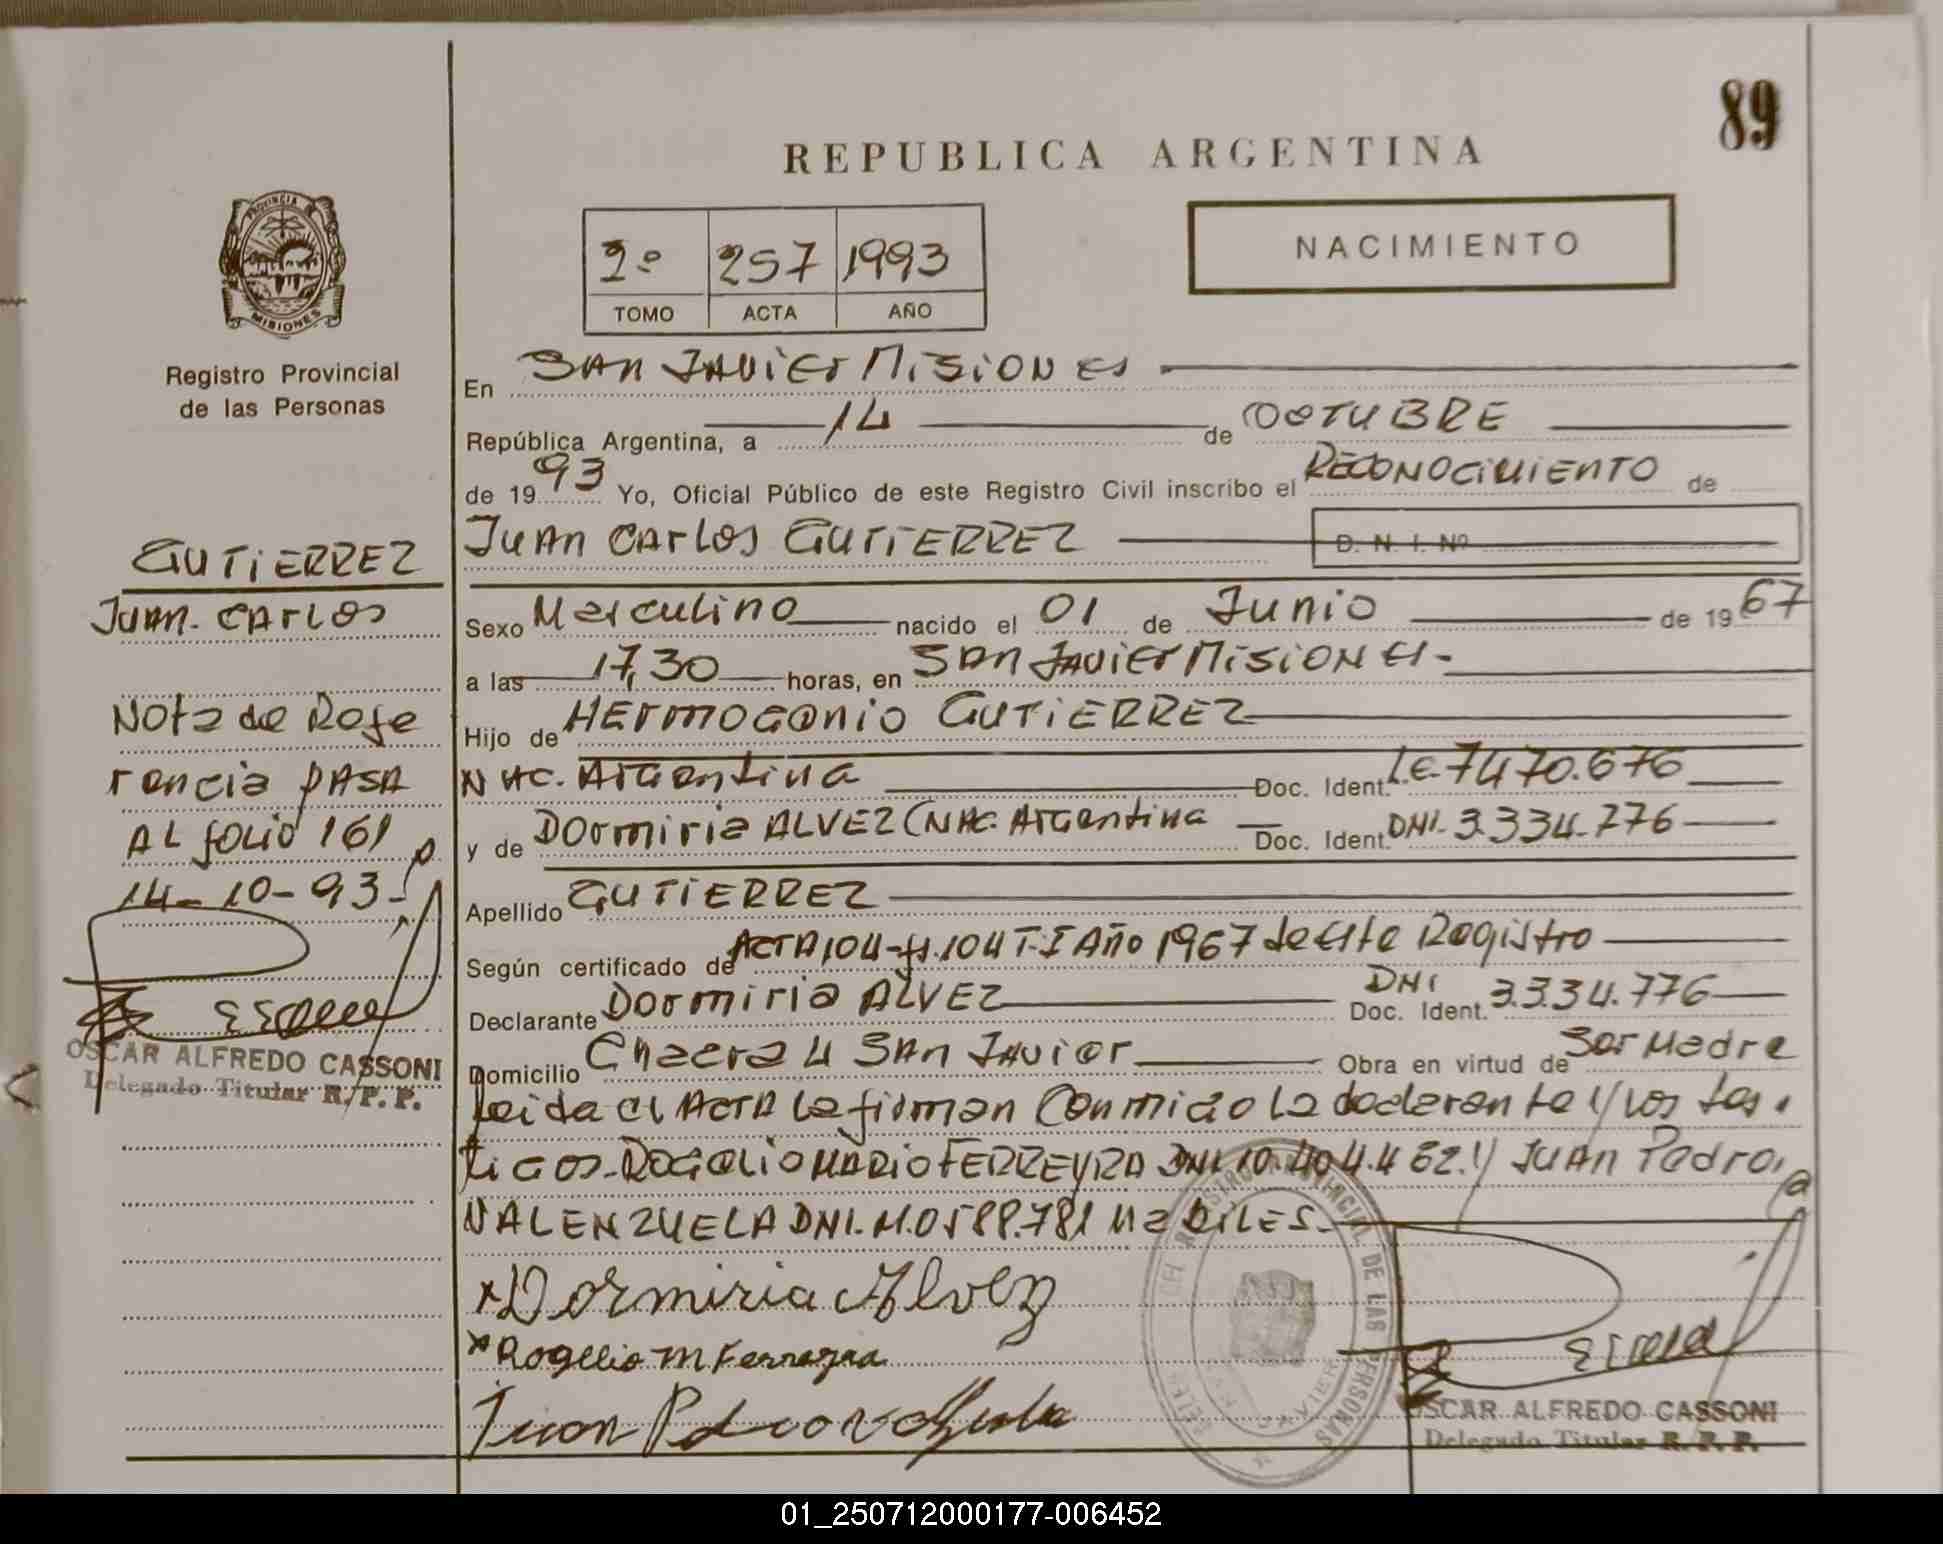 89
REPUBLICA ARGENTINA
PROVINCIA DE
MISIONES
Registro Provincial
de las Personas
2º 257 1993
TOMO ACTA AÑO
NACIMIENTO
En SAN JAVIER MISIONES
República Argentina, a 14 de OCTUBRE
de 1993 Yo, Oficial Público de este Registro Civil inscribo el RECONOCIMIENTO de
JUAN CARLOS GUTIERREZ D. N. I. Nº
Sexo Masculino nacido el 01 de Junio de 1967
a las 17,30 horas, en SAN JAVIER MISIONES-
Hijo de HERMOGENIO GUTIERREZ
NAC. Argentina Doc. Ident. L.E. 7470.676
y de Dormiria ALVEZ (NAC. Argentina Doc. Ident. DNI. 3.334.776
Apellido GUTIERREZ
Según certificado de ACTA 104-fs. 104 T-I Año 1967 de este Registro
Declarante Dormiria ALVEZ Doc. Ident. DNI 3.334.776
Domicilio Chacra 4 SAN Javier Obra en virtud de Ser Madre
Leida el ACTA la firman Conmigo la declarante y los tes-
tigos-ROGELIO MARIO FERREYRA DNI 10.404.462. y JUAN Pedro
VALENZUELA DNI. M. 0588.781 Habiles-
x Dormiria Alvez
x Rogelio M Ferreyra
Juan Pedro
OSCAR ALFREDO CASSONI
Delegado Titular R. P. P.
REGISTRO PROVINCIAL DE LAS PERSONAS
GUTIERREZ
JUAN-CARLOS
Nota de Refe
rencia PASA
AL folio 161
14-10-93-
OSCAR ALFREDO CASSONI
Delegado Titular R. P. P.
01_250712000177-006452